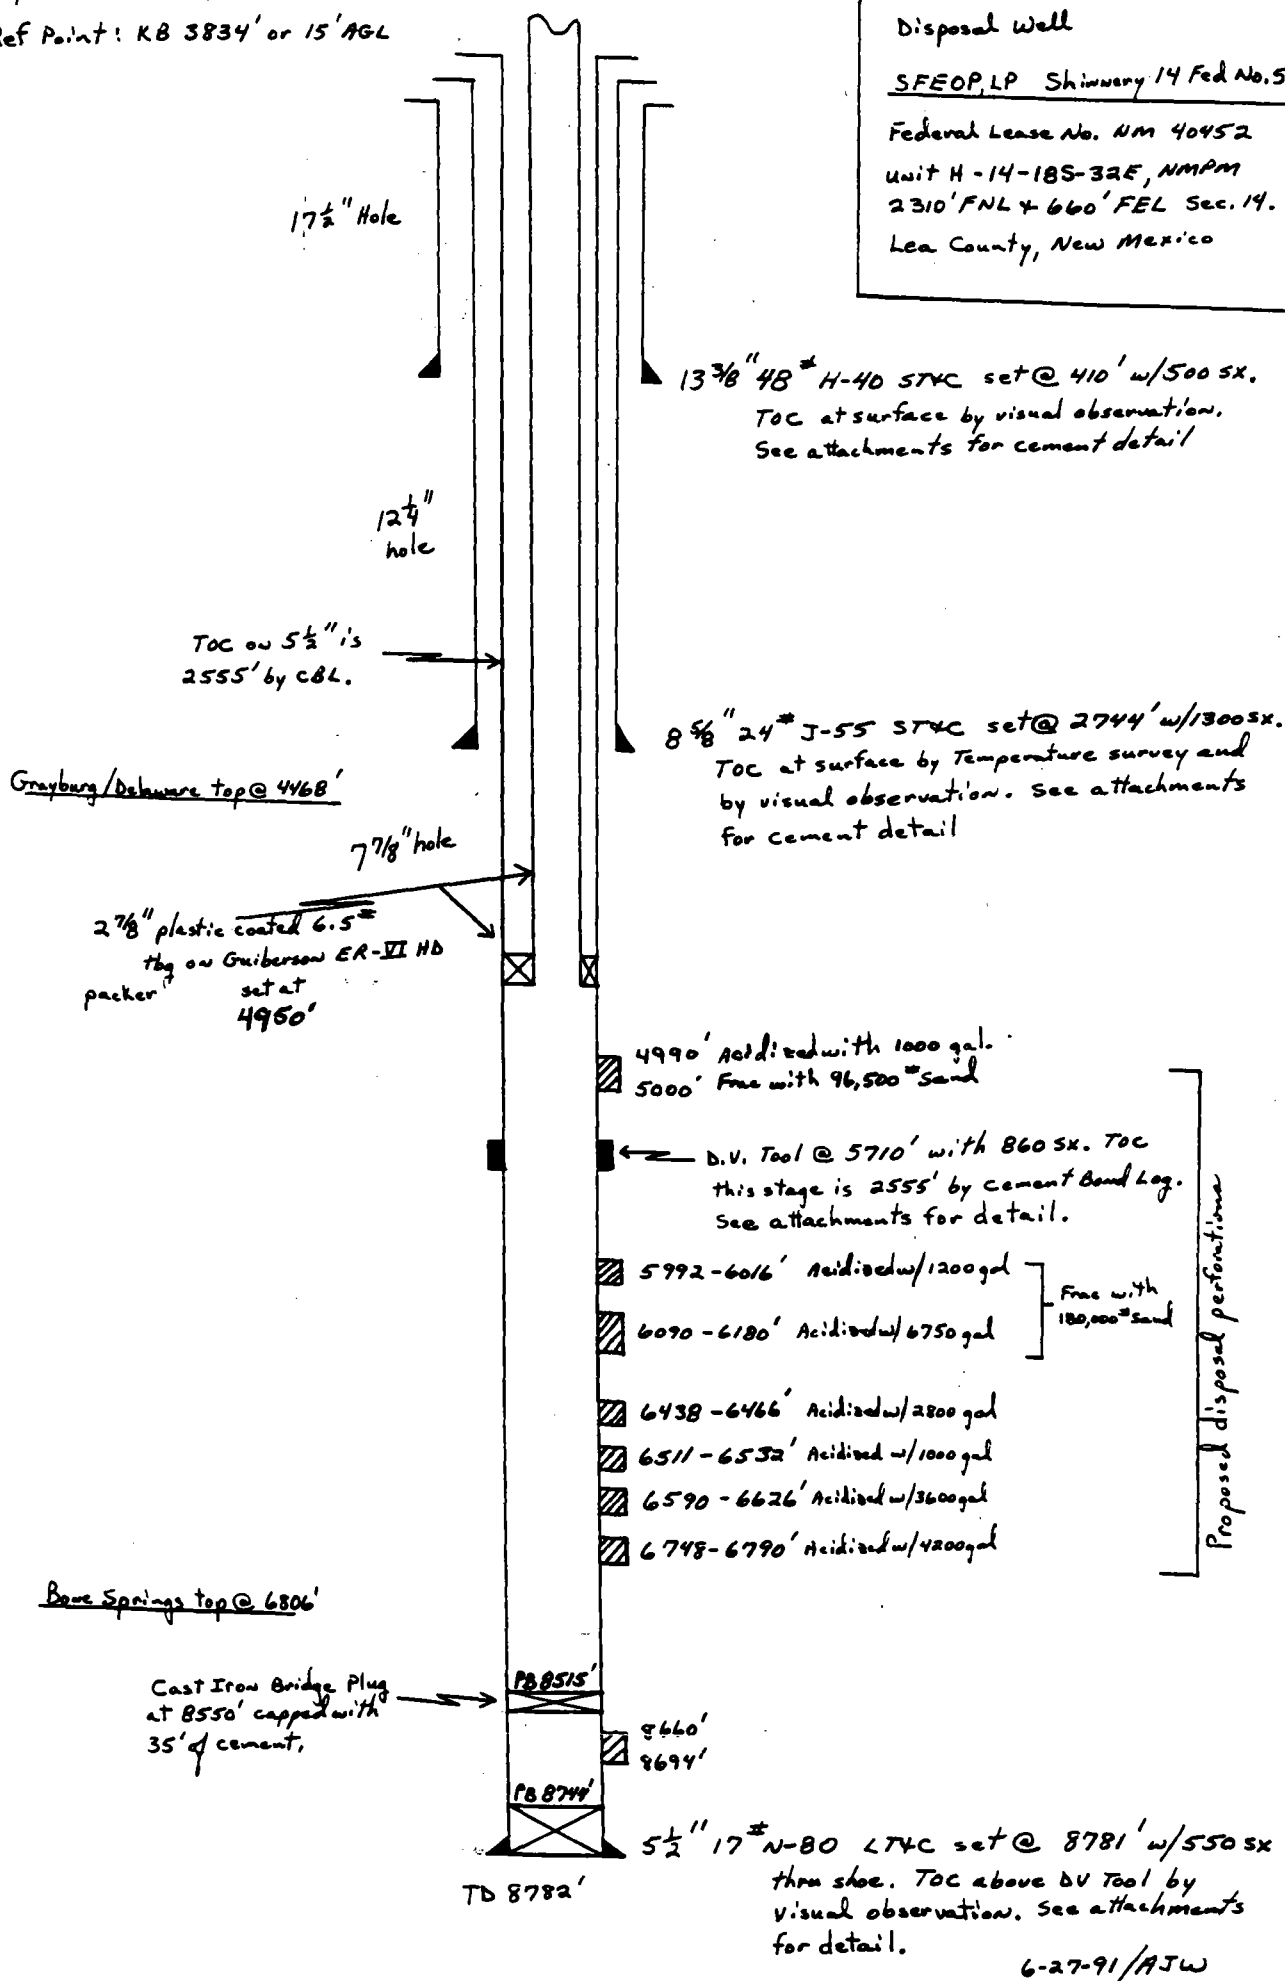 Ref Point: KB 3834' or 15' AGL
Disposal Well
SFEOP, LP Shinnery 14 Fed No. 5
Federal Lease No. NM 40452
Unit H-14-18S-32E, NMPM
2310' FNL & 660' FEL Sec. 14.
Lea County, New Mexico
17 1/2" Hole
13 3/8" 48# H-40 ST&C set @ 410' w/500 sx.
TOC at surface by visual observation.
See attachments for cement detail
12 1/4"
hole
TOC on 5 1/2" is
2555' by CBL.
8 5/8" 24# J-55 ST&C set @ 2744' w/1300 sx.
TOC at surface by Temperature survey and
by visual observation. See attachments
for cement detail
Grayburg/Delaware top @ 4468'
7 7/8" hole
2 7/8" plastic coated 6.5#
tbg on Guiberson ER-VI HD
packer set at
4950'
4990' Acidized with 1000 gal.
5000' Frac with 96,500# Sand
D.V. Tool @ 5710' with 860 sx. TOC
this stage is 2555' by Cement Bond Log.
See attachments for detail.
5992-6016' Acidized w/1200 gal
Frac with
180,000# Sand
6090-6180' Acidized w/6750 gal
6438-6466' Acidized w/2800 gal
6511-6532' Acidized w/1000 gal
6590-6626' Acidized w/3600 gal
6748-6790' Acidized w/4200 gal
Proposed disposal perforations
Bone Springs top @ 6806'
PB 8515'
Cast Iron Bridge Plug
at 8550' capped with
35' of cement.
8660'
8694'
PB 8744'
5 1/2" 17# N-80 LT&C set @ 8781' w/550 sx
thru shoe. TOC above DV Tool by
visual observation. See attachments
for detail.
TD 8782'
6-27-91/AJW